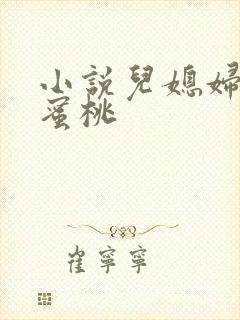 小說兒媳婦
蜜桃
崔寧寧